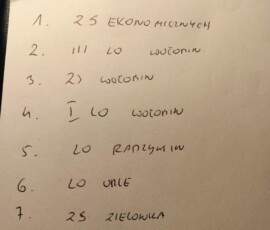 1. ZS EKONOMICZNYCH
2. III LO WOŁOMIN
3. ZS WOŁOMIN
4. I LO WOŁOMIN
5. LO RADZYMIN
6. LO URLE
7. ZS ZIELONKA